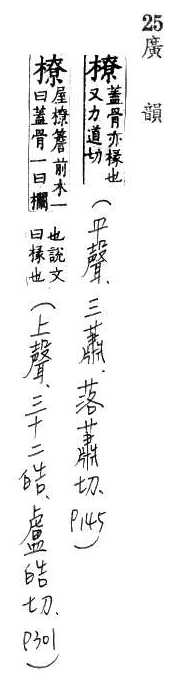 25 廣韻
橑 蓋骨亦椽也
又力道切
(平聲、三蕭、落蕭切、P145)
橑 屋橑簷前木一
曰蓋骨一曰欄
也說文
曰椽也
(上聲、三十二皓、盧皓切、P301)